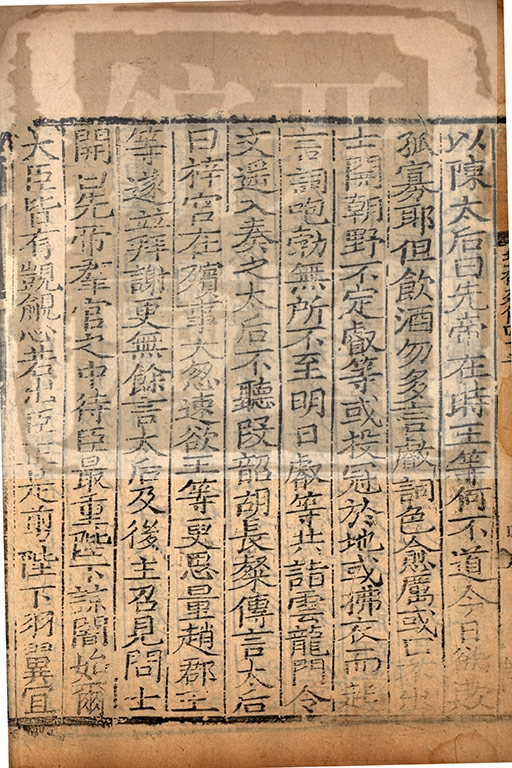 以陳太后曰先帝在時王等何不道今日欲欺
孤寡耶但飲酒勿多言叡詞色愈厲或曰不出
士開朝野不定叡等或投冠於地或拂衣而起
言詞咆勃無所不至明日叡等共詣雲龍門令
文遥入奏之太后不聽段韶胡長粲傳言太后
曰梓宮在殯事大忽速欲王等更思量趙郡王
等遂並拜謝更無餘言太后及後主召見問士
開曰先帝羣官之中待臣最重陛下諒闇始爾
大臣皆有覬覦心若出臣正是剪陛下羽翼宜